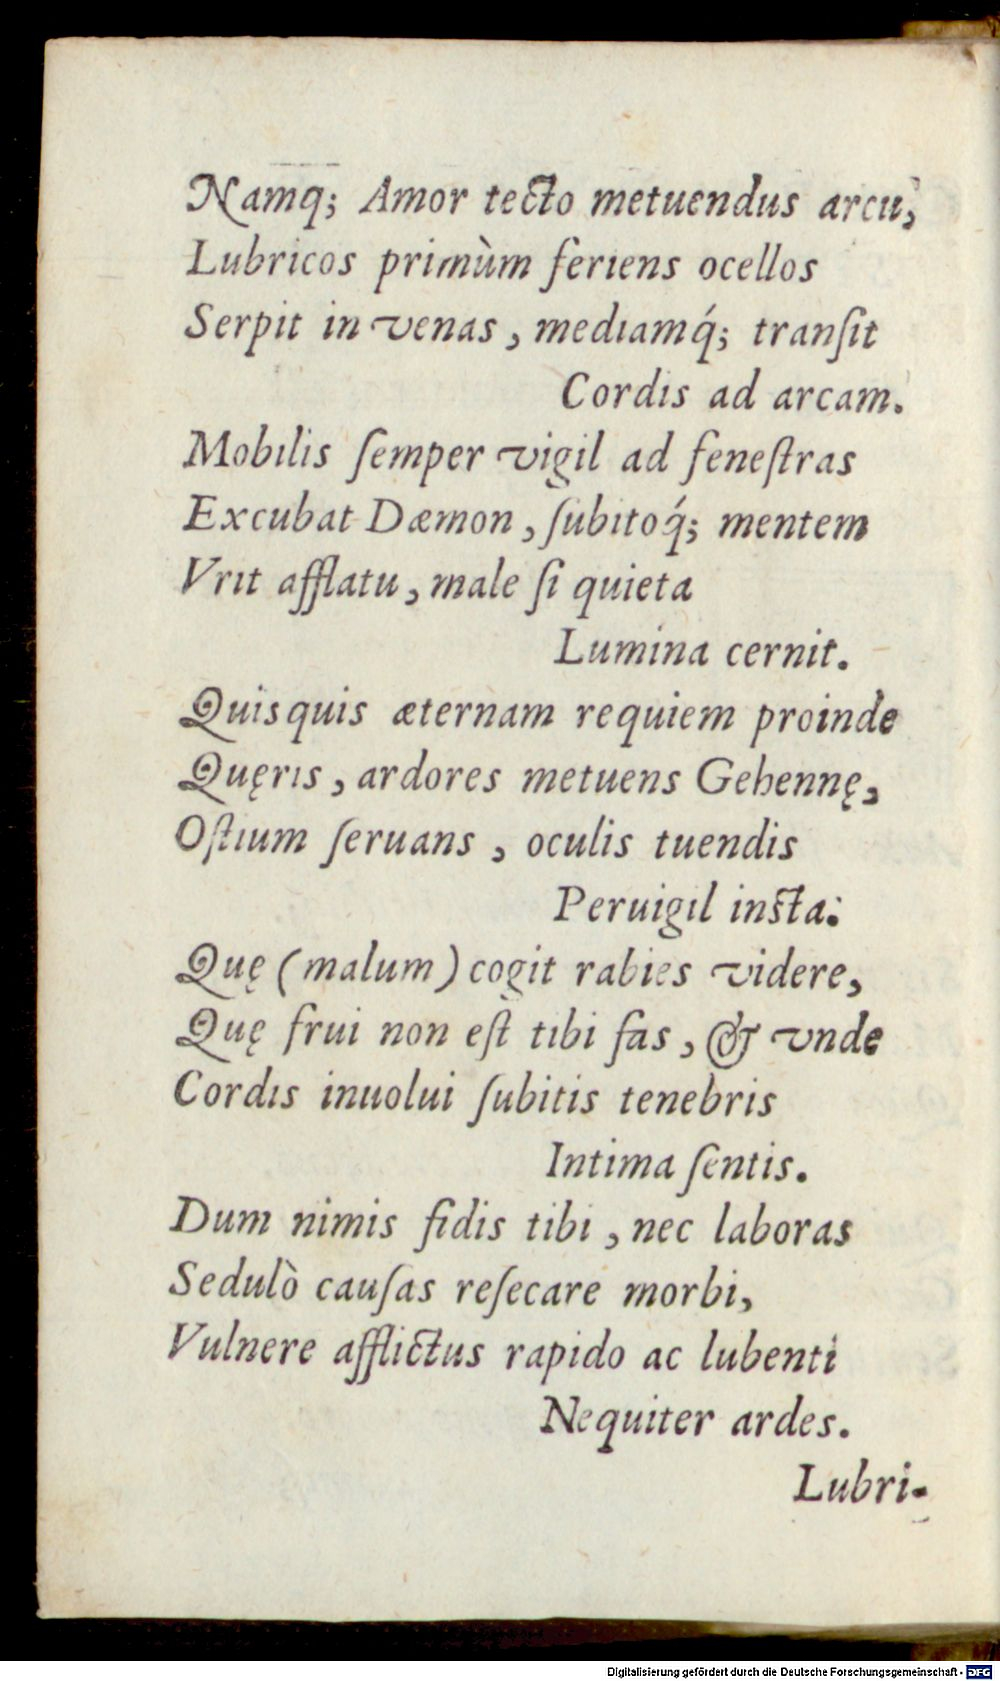 Namq; Amor tecto metuendus arcu,
Lubricos primùm feriens ocellos
Serpit in venas, mediamq́; tranſit
Cordis ad arcam.
Mobilis ſemper vigil ad feneſtras
Excubat Dæmon, ſubitoq́; mentem
Vrit afflatu, male ſi quieta
Lumina cernit.
Quisquis æternam requiem proinde
Quęris, ardores metuens Gehennę,
Oſtium ſeruans, oculis tuendis
Peruigil insta:
Quę (malum) cogit rabies videre,
Quę frui non eſt tibi fas, & vnde
Cordis inuolui ſubitis tenebris
Intima ſentis.
Dum nimis fidis tibi, nec laboras
Sedulò cauſas reſecare morbi,
Vulnere afflictus rapido ac lubenti
Nequiter ardes.
Lubri-
Digitalisierung gefördert durch die Deutsche Forschungsgemeinschaft - DFG